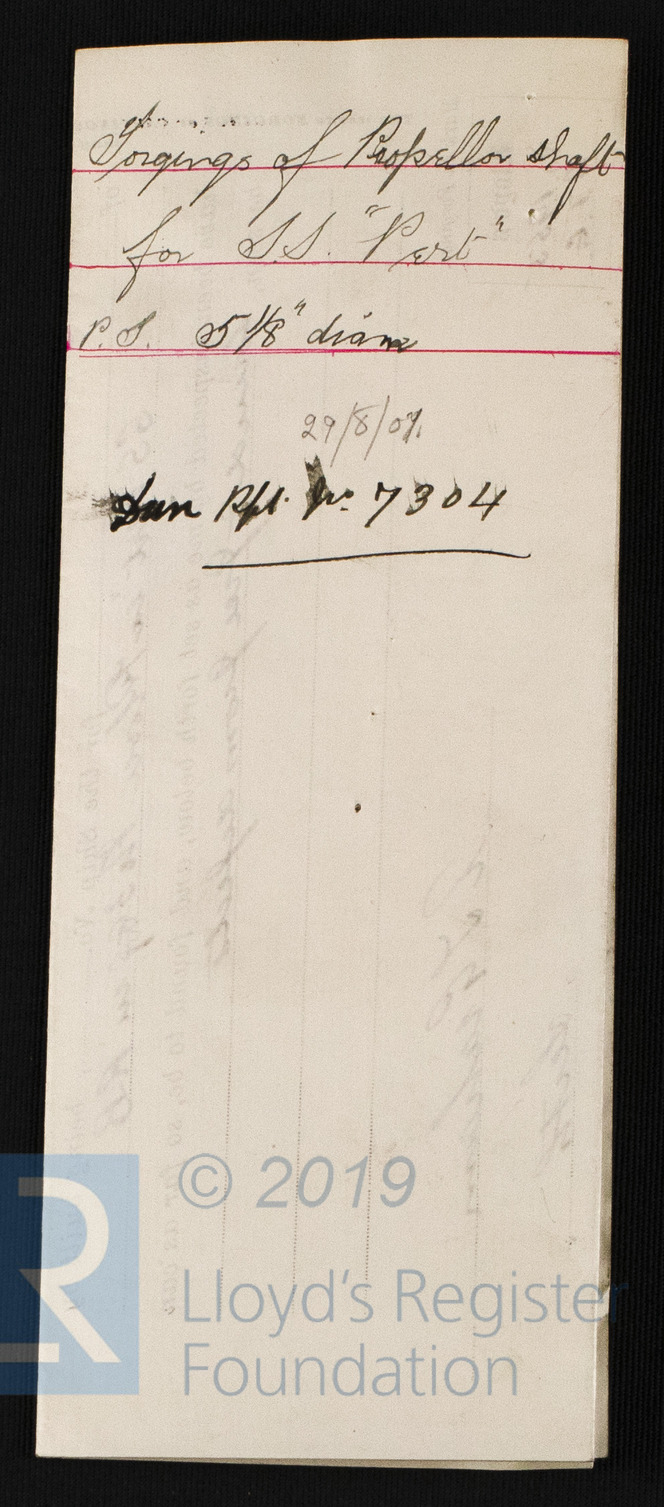 Forgings of Propellor shaft
for S.S. "Pert"
P.S. 5 1/8" diam
29/8/07.
Dun Rpt. No. 7304
© 2019
Lloyd's Register
Foundation